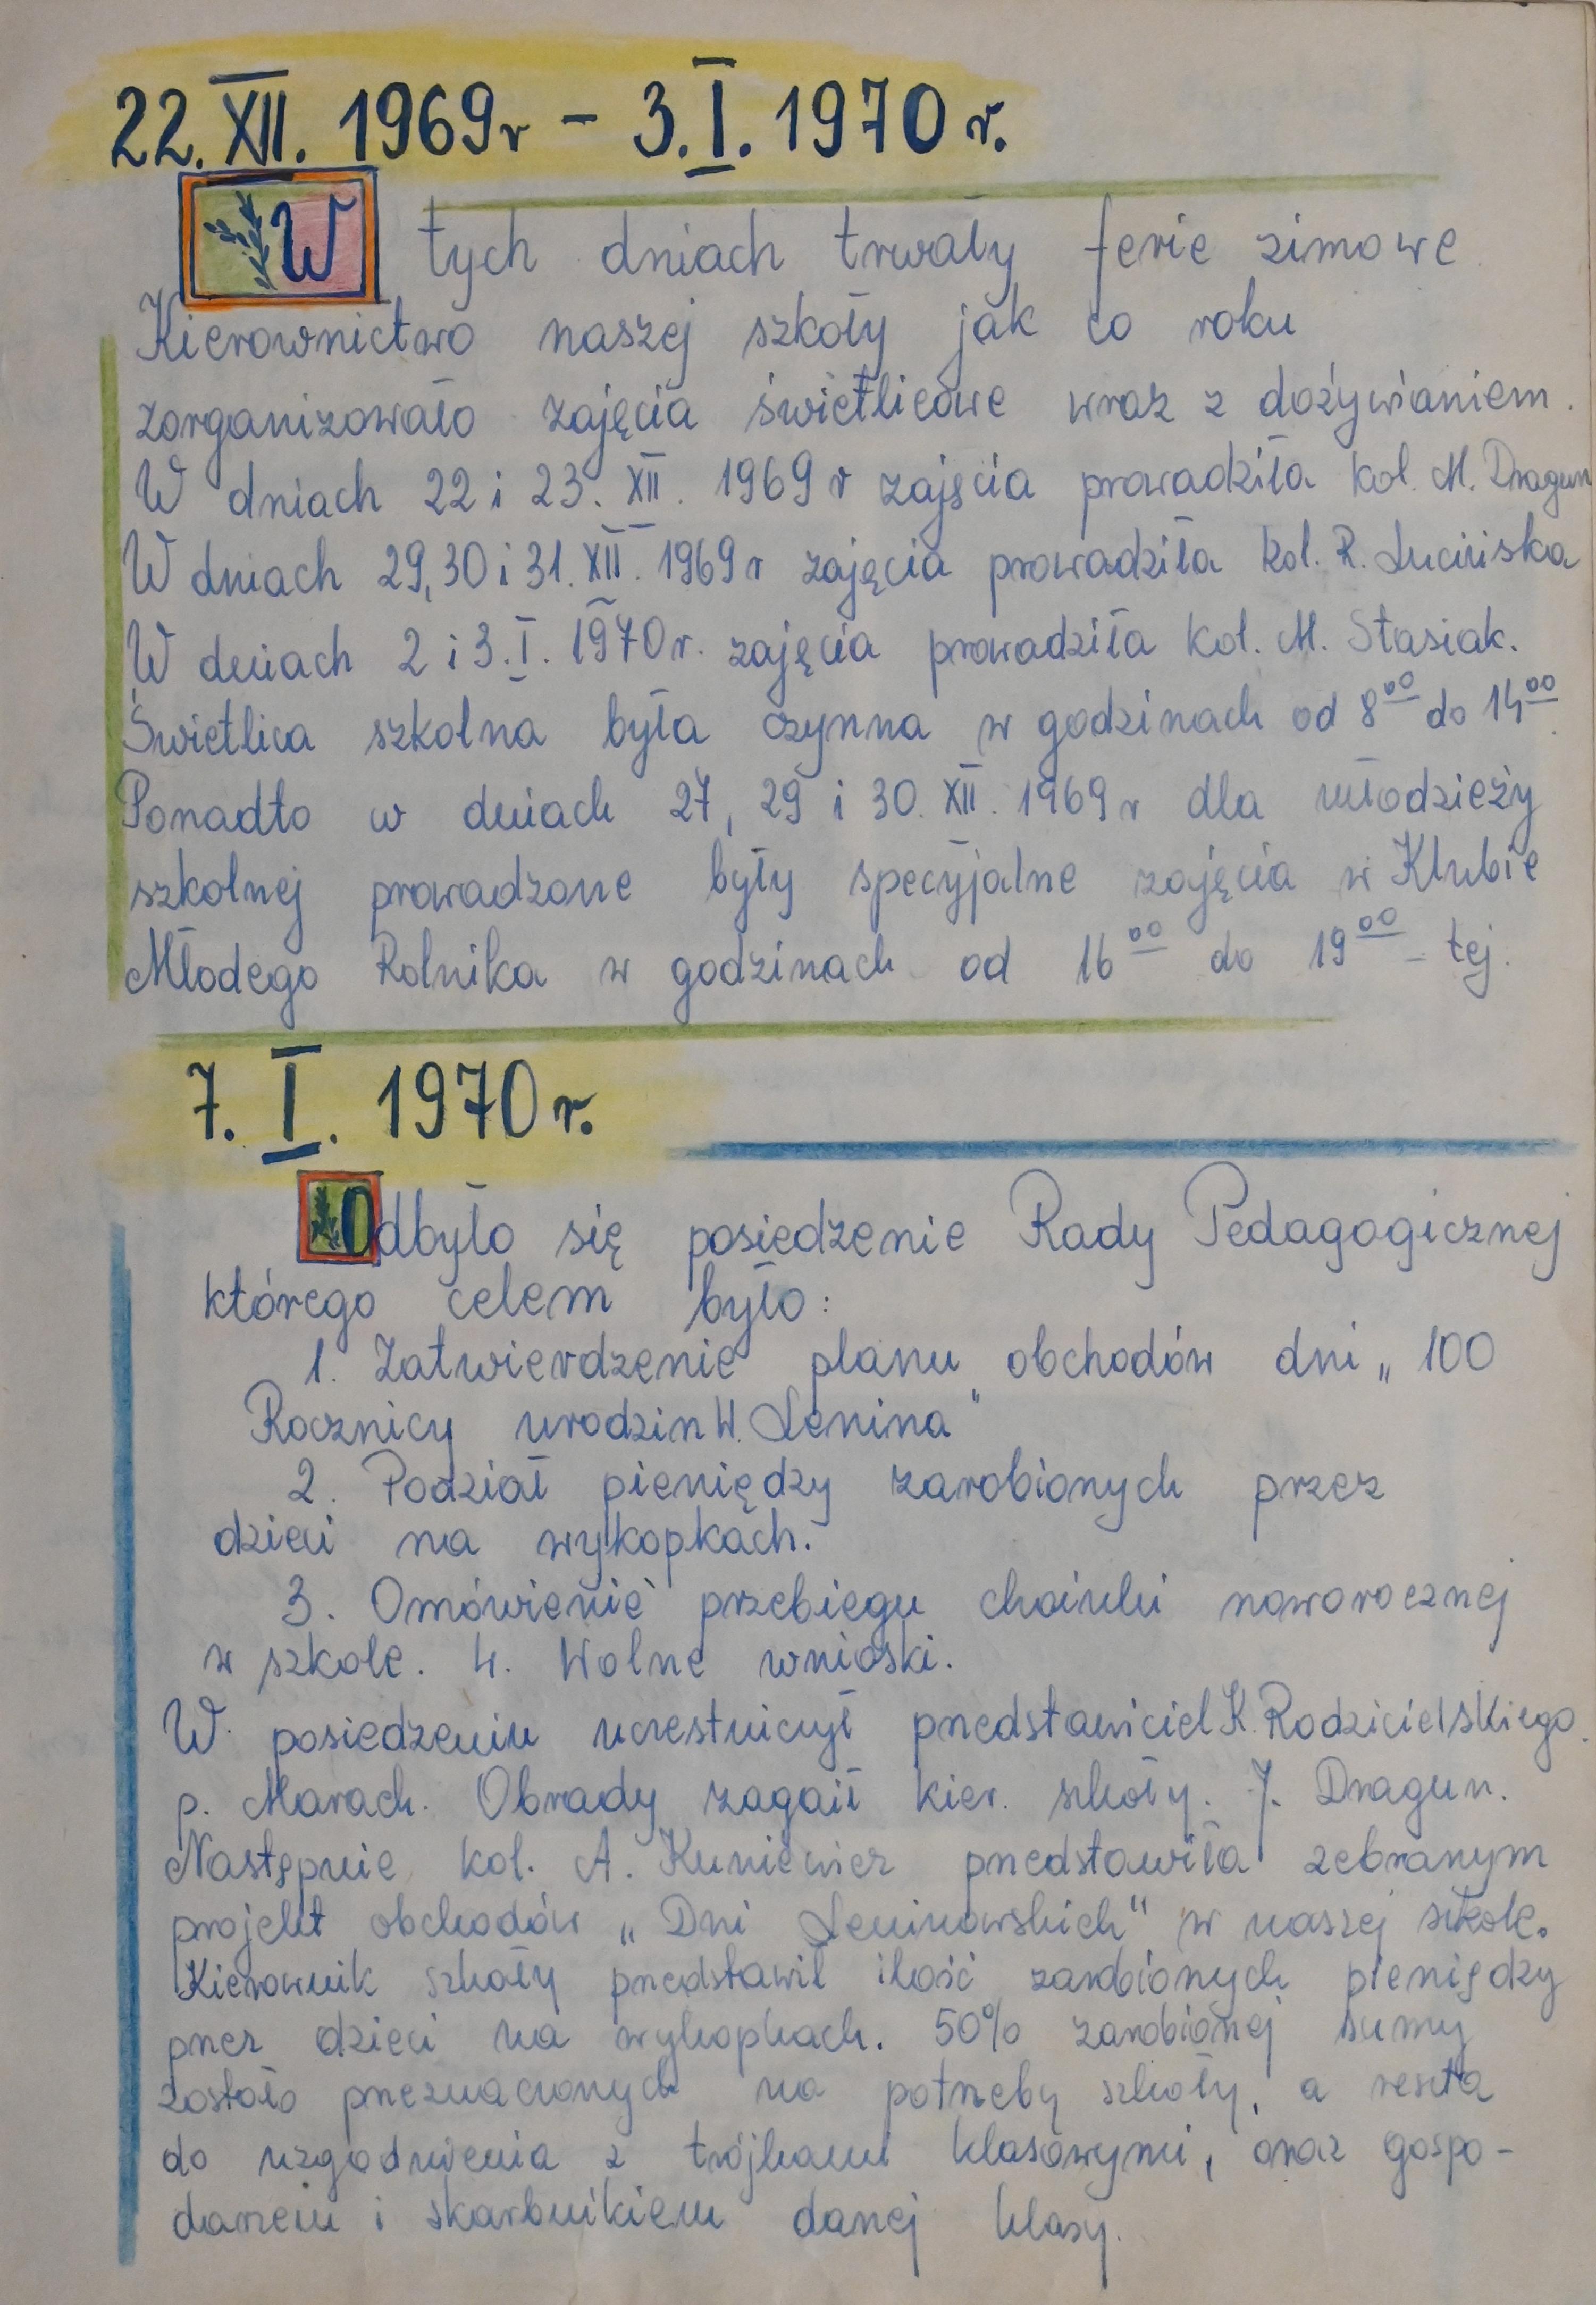 22. XII. 1969r - 3. I. 1970 r.
W tych dniach trwały ferie zimowe
Kierownictwo naszej szkoły jak co roku
zorganizowało zajęcia świetlicowe wraz z dożywianiem.
W dniach 22 i 23. XII. 1969 r zajęcia prowadziła kol. M. Dragun
W dniach 29, 30 i 31. XII. 1969 r zajęcia prowadziła kol. R. Lucińska
W dniach 2 i 3. I. 1970 r. zajęcia prowadziła kol. M. Stasiak.
Świetlica szkolna była czynna w godzinach od 8⁰⁰ do 14⁰⁰.
Ponadto w dniach 27, 29 i 30. XII. 1969 r dla młodzieży
szkolnej prowadzone były specyjalne zajęcia w Klubie
Młodego Rolnika w godzinach od 16⁰⁰ do 19⁰⁰ - tej.
7. I. 1970 r.
Odbyło się posiedzenie Rady Pedagogicznej
którego celem było:
1. Zatwierdzenie planu obchodów dni „100
Rocznicy urodzin W. Lenina"
2. Podział pieniędzy zarobionych przez
dzieci na wykopkach.
3. Omówienie przebiegu choinki noworocznej
w szkole. 4. Wolne wnioski.
W posiedzeniu uczestniczył przedstawiciel K. Rodzicielskiego.
p. Marach. Obrady zagaił kier. szkoły. J. Dragun.
Następnie kol. A. Kuniewicz przedstawiła zebranym
projekt obchodów „Dni Leninowskich" w naszej szkole.
Kierownik szkoły przedstawił ilość zarobionych pieniędzy
przez dzieci na wykopkach. 50% zarobionej sumy
zostało przeznaczonych na potrzeby szkoły, a reszta
do uzgodnienia z trójkami klasowymi, oraz gospo-
darzem i skarbnikiem danej klasy.